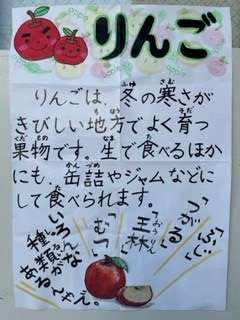 りんご
りんごは、冬の寒さが
きびしい地方でよく育つ
果物です。生で食べるほか
にも、缶詰やジャムなどに
して食べられます。
「ふじ」
「つがる」
「王林」
「むつ」
いろんな
種類が
あるねぇ。